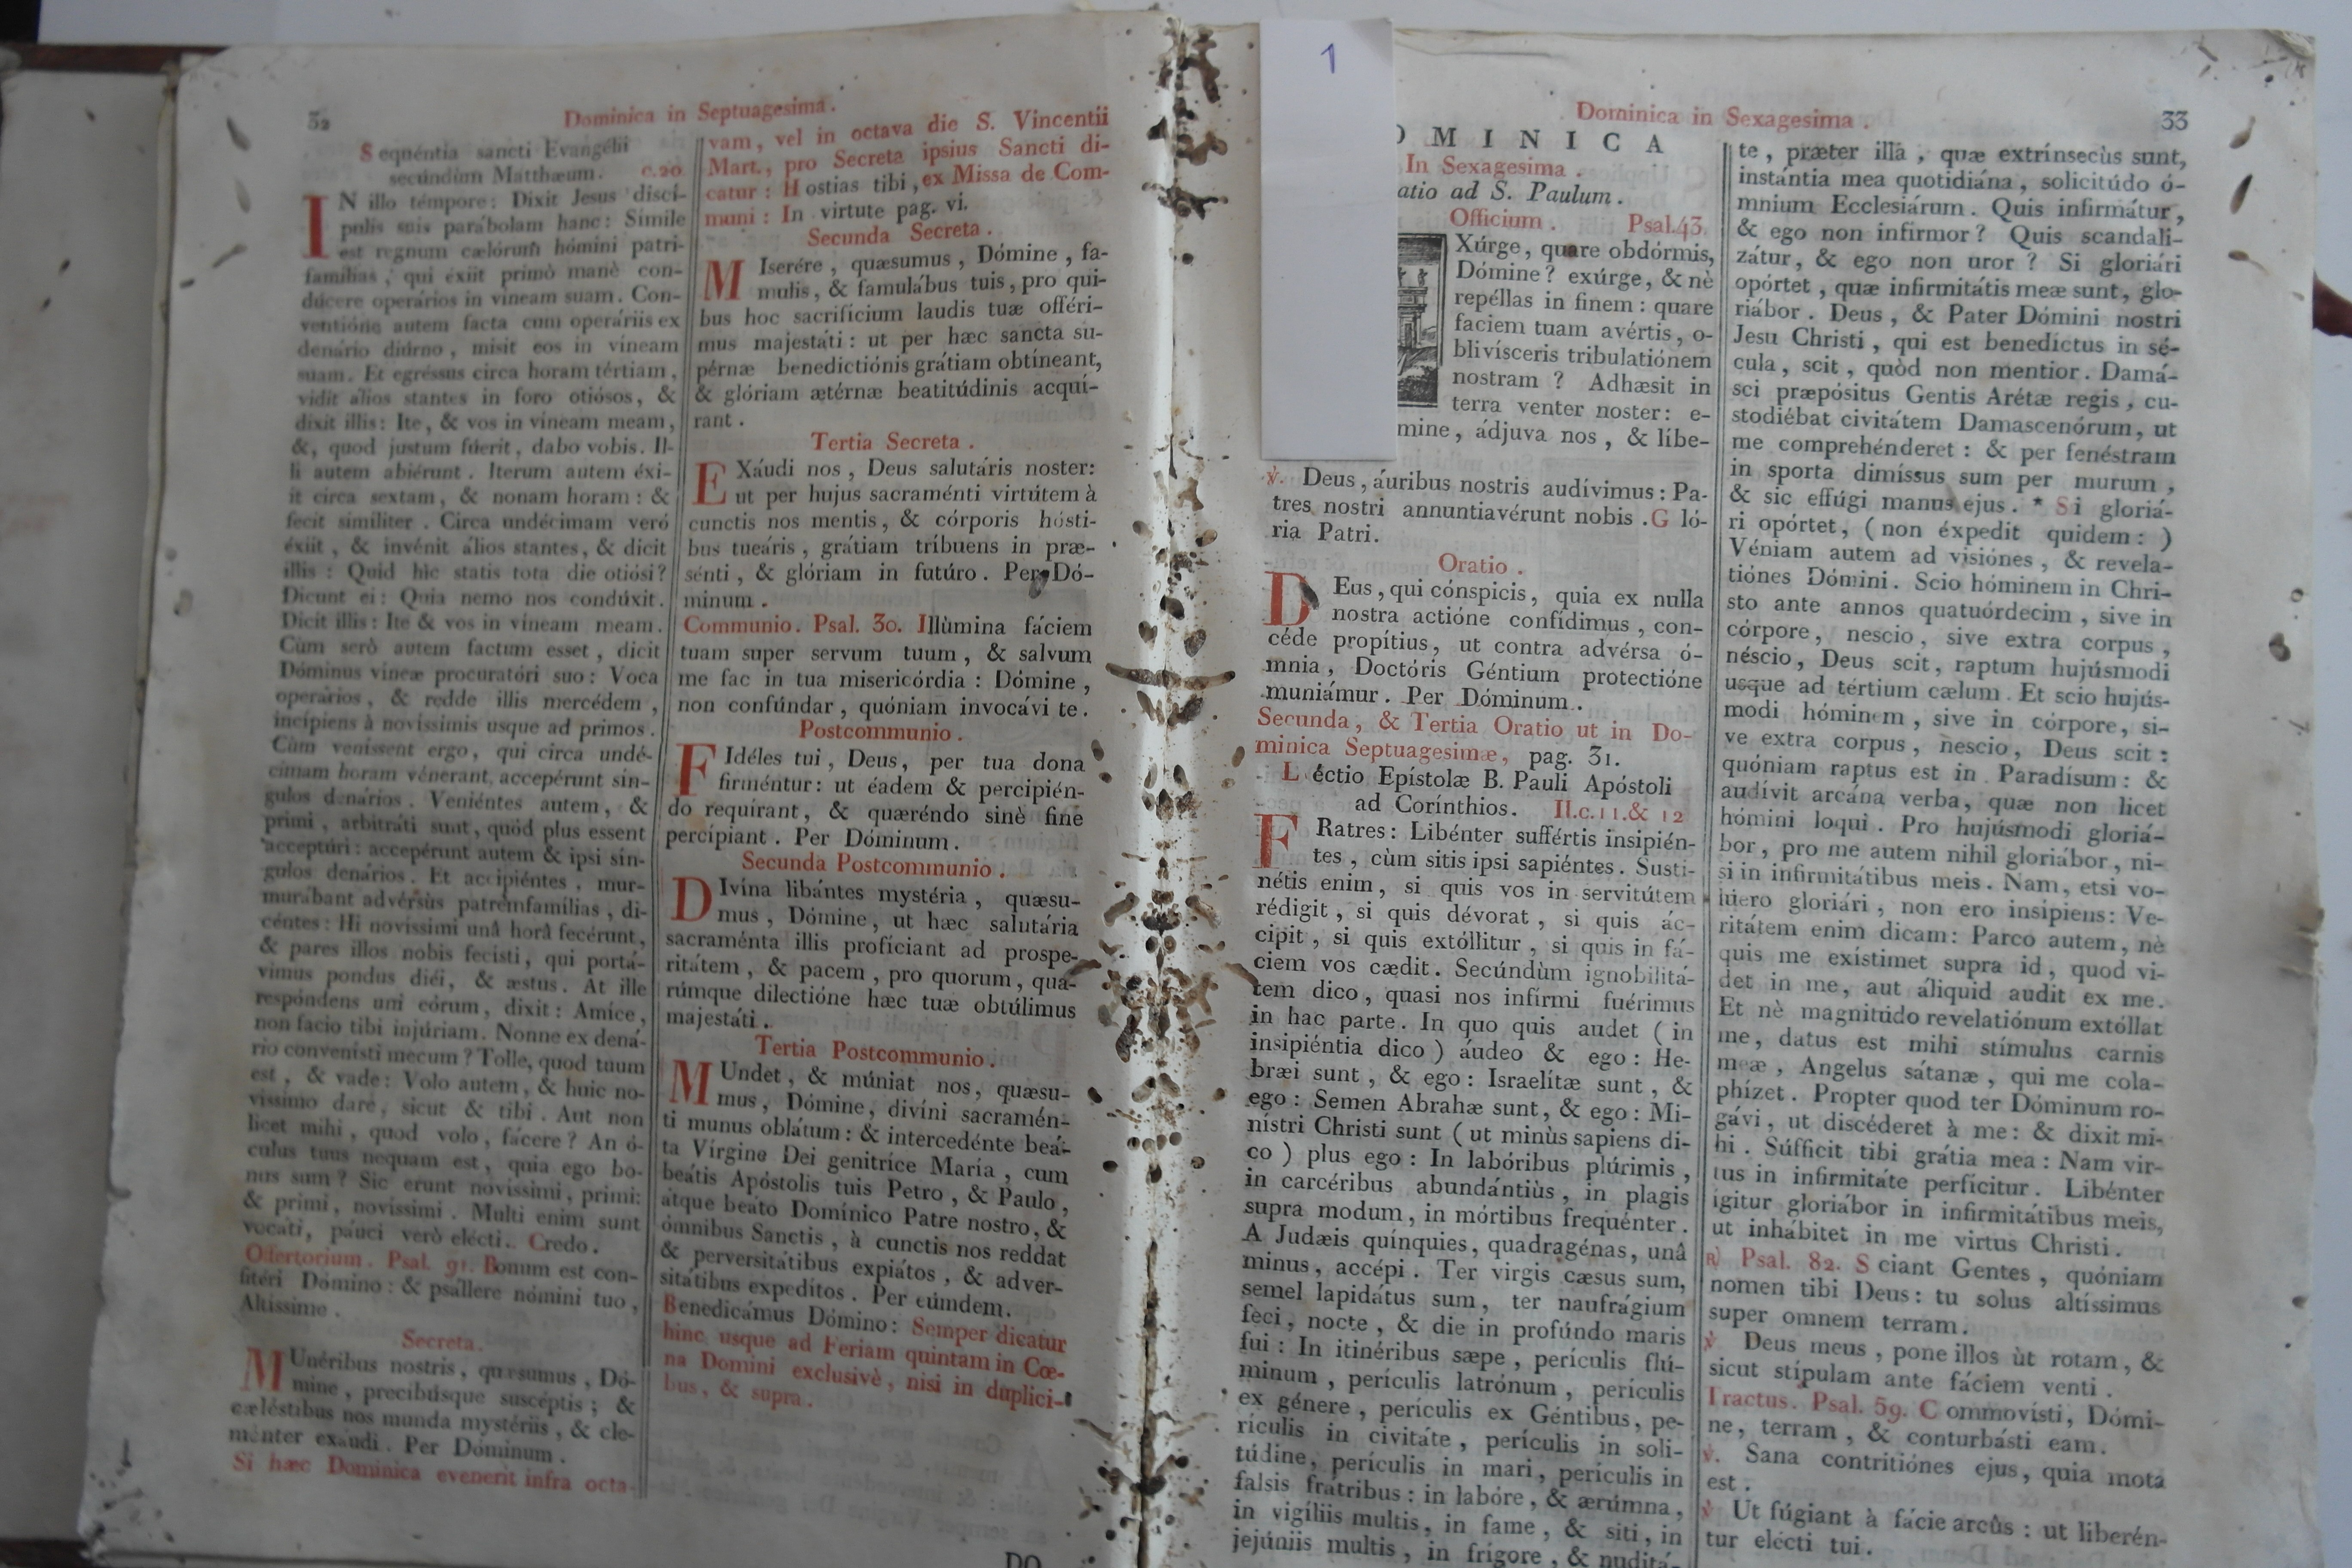 32
Dominica in Septuagesima.
Sequéntia sancti Evangélii
secúndùm Matthæum. c.20
IN illo témpore: Dixit Jesus discí-
pulis suis parábolam hanc: Símile
est regnum cælórum hómini patri-
famílias, qui éxiit primò manè con-
dúcere operários in víneam suam. Con-
ventióne autem facta cum operáriis ex
denário diúrno, misit eos in víneam
suam. Et egréssus circa horam tértiam,
vidit álios stantes in foro otiósos, &
dixit illis: Ite, & vos in víneam meam,
&, quod justum fúerit, dabo vobis. Il-
li autem abiérunt. Iterum autem éxi-
it circa sextam, & nonam horam: &
fecit simíliter. Circa undécimam veró
éxiit, & invénit álios stantes, & dicit
illis: Quid hic statis tota die otiósi?
Dicunt ei: Quia nemo nos condúxit.
Dicit illis: Ite & vos in víneam meam.
Cùm serò autem factum esset, dicit
Dóminus víneæ procuratóri suo: Voca
operários, & redde illis mercédem,
incípiens à novíssimis usque ad primos.
Cùm venissent ergo, qui circa undé-
cimam horam vénerant, accepérunt sín-
gulos denários. Veniéntes autem, &
primi, arbitráti sunt, quòd plus essent
acceptúri: accepérunt autem & ipsi sín-
gulos denários. Et accipiéntes, mur-
murábant advérsùs patremfamílias, di-
céntes: Hi novíssimi unâ horâ fecérunt,
& pares illos nobis fecísti, qui portá-
vimus pondus diéi, & æstus. At ille
respóndens uni eórum, dixit: Amíce,
non facio tibi injúriam. Nonne ex dená-
rio convenísti mecum? Tolle, quod tuum
est, & vade: Volo autem, & huic no-
víssimo dare, sicut & tibi. Aut non
licet mihi, quod volo, fácere? An ó-
culus tuus nequam est, quia ego bo-
nus sum? Sic erunt novíssimi, primi:
& primi, novíssimi. Multi enim sunt
vocáti, páuci verò elécti. Credo.
Offertorium. Psal. 91. Bonum est con-
fitéri Dómino: & psállere nómini tuo,
Altíssime.
Secreta.
MUnéribus nostris, quæsumus, Dó-
mine, precibúsque suscéptis; &
cæléstibus nos munda mystériis, & cle-
ménter exaudi. Per Dóminum.
Si hæc Dominica evenerit infra octa-
vam, vel in octava die S. Vincentii
Mart., pro Secreta ipsius Sancti di-
catur: Hostias tibi, ex Missa de Com-
muni: In virtute pag. vi.
Secunda Secreta.
MIserére, quæsumus, Dómine, fa-
mulis, & famulábus tuis, pro qui-
bus hoc sacrifícium laudis tuæ offéri-
mus majestáti: ut per hæc sancta su-
pérnæ benedictiónis grátiam obtíneant,
& glóriam ætérnæ beatitúdinis acquí-
rant.
Tertia Secreta.
EXáudi nos, Deus salutáris noster:
ut per hujus sacraménti virtútem à
cunctis nos mentis, & córporis hósti-
bus tueáris, grátiam tríbuens in præ-
sénti, & glóriam in futúro. Per Dó-
minum.
Communio. Psal. 30. Illùmina fáciem
tuam super servum tuum, & salvum
me fac in tua misericórdia: Dómine,
non confúndar, quóniam invocávi te.
Postcommunio.
FIdéles tui, Deus, per tua dona
firméntur: ut éadem & percipién-
do requírant, & quæréndo sinè fine
percípiant. Per Dóminum.
Secunda Postcommunio.
DIvína libántes mystéria, quæsu-
mus, Dómine, ut hæc salutária
sacraménta illis profíciant ad prospe-
ritátem, & pacem, pro quorum, qua-
rúmque dilectióne hæc tuæ obtúlimus
majestáti.
Tertia Postcommunio.
MUndet, & múniat nos, quæsu-
mus, Dómine, divíni sacramén-
ti munus oblátum: & intercedénte beá-
ta Vírgine Dei genitríce María, cum
beátis Apóstolis tuis Petro, & Paulo,
átque beáto Domínico Patre nostro, &
ómnibus Sanctis, à cunctis nos reddat
& perversitátibus expiátos, & adver-
sitátibus expeditos. Per eúmdem.
Benedicámus Dómino: Semper dicatur
hinc usque ad Feriam quintam in Cœ-
na Domini exclusivè, nisi in duplici-
bus, & supra.
DO
1
Dominica in Sexagesima.
33
OMINICA
In Sexagesima.
atio ad S. Paulum.
Officium. Psal.43.
Xúrge, quare obdórmis,
Dómine? exúrge, & nè
repéllas in finem: quare
faciem tuam avértis, o-
blivísceris tribulatiónem
nostram? Adhæsit in
terra venter noster: e-
mine, ádjuva nos, & líbe-
℣. Deus, áuribus nostris audívimus: Pa-
tres nostri annuntiavérunt nobis. Gló-
ria Patri.
Oratio.
DEus, qui cónspicis, quia ex nulla
nostra actióne confídimus, con-
céde propítius, ut contra advérsa ó-
mnia, Doctóris Géntium protectióne
muniámur. Per Dóminum.
Secunda, & Tertia Oratio ut in Do-
minica Septuagesimæ, pag. 31.
Léctio Epístolæ B. Pauli Apóstoli
ad Corínthios. II.c.11.& 12
FRatres: Libénter suffértis insipién-
tes, cùm sitis ipsi sapiéntes. Susti-
nétis enim, si quis vos in servitútem
rédigit, si quis dévorat, si quis ác-
cipit, si quis extóllitur, si quis in fá-
ciem vos cædit. Secúndùm ignobilitá-
tem dico, quasi nos infírmi fuérimus
in hac parte. In quo quis audet (in
insipiéntia dico) áudeo & ego: He-
bræi sunt, & ego: Israelítæ sunt, &
ego: Semen Abrahæ sunt, & ego: Mi-
nistri Christi sunt (ut minùs sapiens di-
co) plus ego: In labóribus plúrimis,
in carcéribus abundántiùs, in plagis
supra modum, in mórtibus frequénter.
A Judæis quínquies, quadragénas, unâ
minus, accépi. Ter virgis cæsus sum,
semel lapidátus sum, ter naufrágium
feci, nocte, & die in profúndo maris
fui: In itinéribus sæpe, perículis flú-
minum, perículis latrónum, perículis
ex génere, perículis ex Géntibus, pe-
rículis in civitáte, perículis in soli-
túdine, perículis in mari, perículis in
falsis frátribus: in labóre, & ærúmna,
in vigíliis multis, in fame, & siti, in
jejúniis multis, in frígore, & nuditá-
te, præter illa, quæ extrínsecùs sunt,
instántia mea quotidiána, solicitúdo ó-
mnium Ecclesiárum. Quis infirmátur,
& ego non infirmor? Quis scandali-
zátur, & ego non uror? Si gloriári
opórtet, quæ infirmitátis meæ sunt, glo-
riábor. Deus, & Pater Dómini nostri
Jesu Christi, qui est benedíctus in sé-
cula, scit, quòd non mentior. Damá-
sci præpósitus Gentis Arétæ regis, cu-
stodiébat civitátem Damascenórum, ut
me comprehénderet: & per fenéstram
in sporta dimíssus sum per murum,
& sic effúgi manus ejus. * Si gloriá-
ri opórtet, (non éxpedit quidem:)
Véniam autem ad visiónes, & revela-
tiónes Dómini. Scio hóminem in Chri-
sto ante annos quatuórdecim, sive in
córpore, nescio, sive extra corpus,
néscio, Deus scit, raptum hujúsmodi
usque ad tértium cælum. Et scio hujús-
modi hóminem, sive in córpore, si-
ve extra corpus, nescio, Deus scit:
quóniam raptus est in Paradísum: &
audívit arcána verba, quæ non licet
hómini loqui. Pro hujúsmodi gloriá-
bor, pro me autem nihil gloriábor, ni-
si in infirmitátibus meis. Nam, etsi vo-
lúero gloriári, non ero insípiens: Ve-
ritátem enim dicam: Parco autem, nè
quis me exístimet supra id, quod vi-
det in me, aut áliquid audit ex me.
Et nè magnitúdo revelatiónum extóllat
me, datus est mihi stímulus carnis
meæ, Angelus sátanæ, qui me cola-
phízet. Propter quod ter Dóminum ro-
gávi, ut discéderet à me: & dixit mi-
hi. Súfficit tibi grátia mea: Nam vir-
tus in infirmitáte perfícitur. Libénter
igitur gloriábor in infirmitátibus meis,
ut inhábitet in me virtus Christi.
℟ Psal. 82. Sciant Gentes, quóniam
nomen tibi Deus: tu solus altíssimus
super omnem terram.
℣ Deus meus, pone illos ùt rotam, &
sicut stípulam ante fáciem venti.
Tractus. Psal. 59. Commovísti, Dómi-
ne, terram, & conturbásti eam.
℣. Sana contritiónes ejus, quia mota
est.
℣ Ut fúgiant à fácie arcûs: ut liberén-
tur elécti tui.